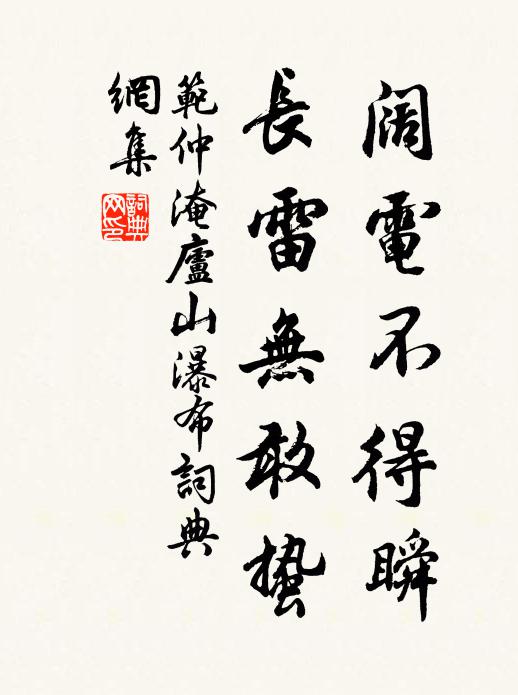 阔電不得瞬
長雷無敢蟄
範仲淹廬山瀑布詞典
網集
詞典
网印